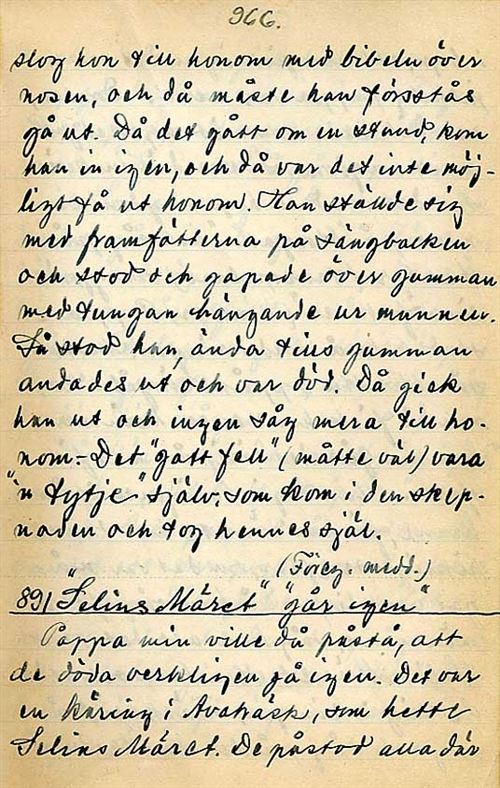 966.
slog hon till honom med bibeln över
nosen, och då måste han förstås
gå ut. Då det gått om en stund, kom
han in igen, och då var det inte möj-
ligt få ut honom. Han ställde sig
med framfötterna på sängbacken
och stod och gapade över gumman
med tungan hängande ur munnen.
Så stod han, ända tills gumman
andades ut och var död. Då gick
han ut och ingen såg mera till ho-
nom.- Det "gatt fell" (måtte väl) vara
"'n tytje" själv, som kom i den skep-
naden och tog hennes själ.
(Föreg. medd.)
891 "Selins Märet" "går igen"
Pappa min ville då påstå, att
de döda verkligen gå igen. Det var
en käring i Avaträsk, som hette
Selins Märet. De påstod alla där